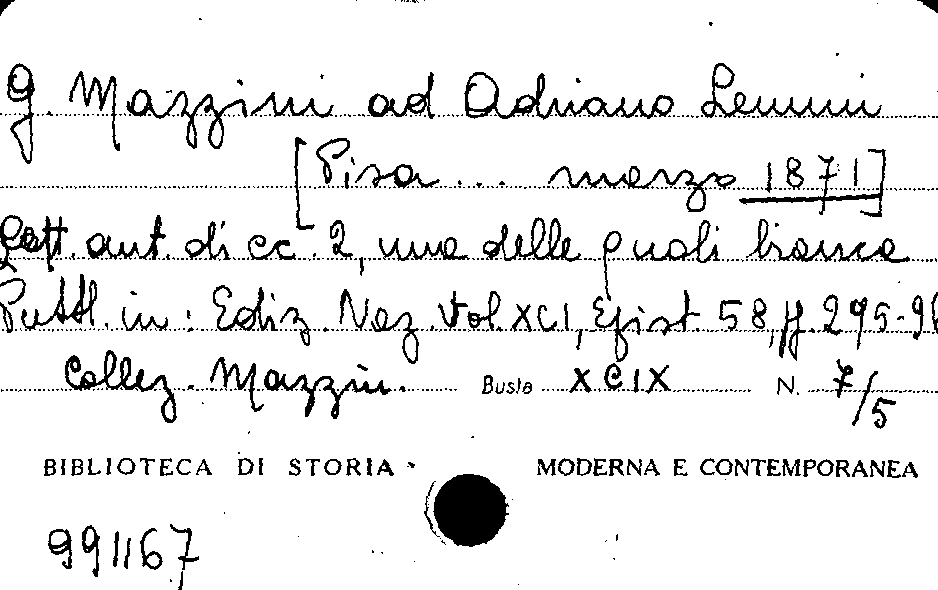 G. Mazzini ad Adriano Lemmi
[Pisa... marzo 1871]
Lett. aut. di cc. 2, una delle quali bianca
Pubbl. in: Ediz. Naz. Vol. XCI, Epist. 58, pp. 295-96
Collez. Mazzin. Busta XCIX N. 7/5
BIBLIOTECA DI STORIA MODERNA E CONTEMPORANEA
991167